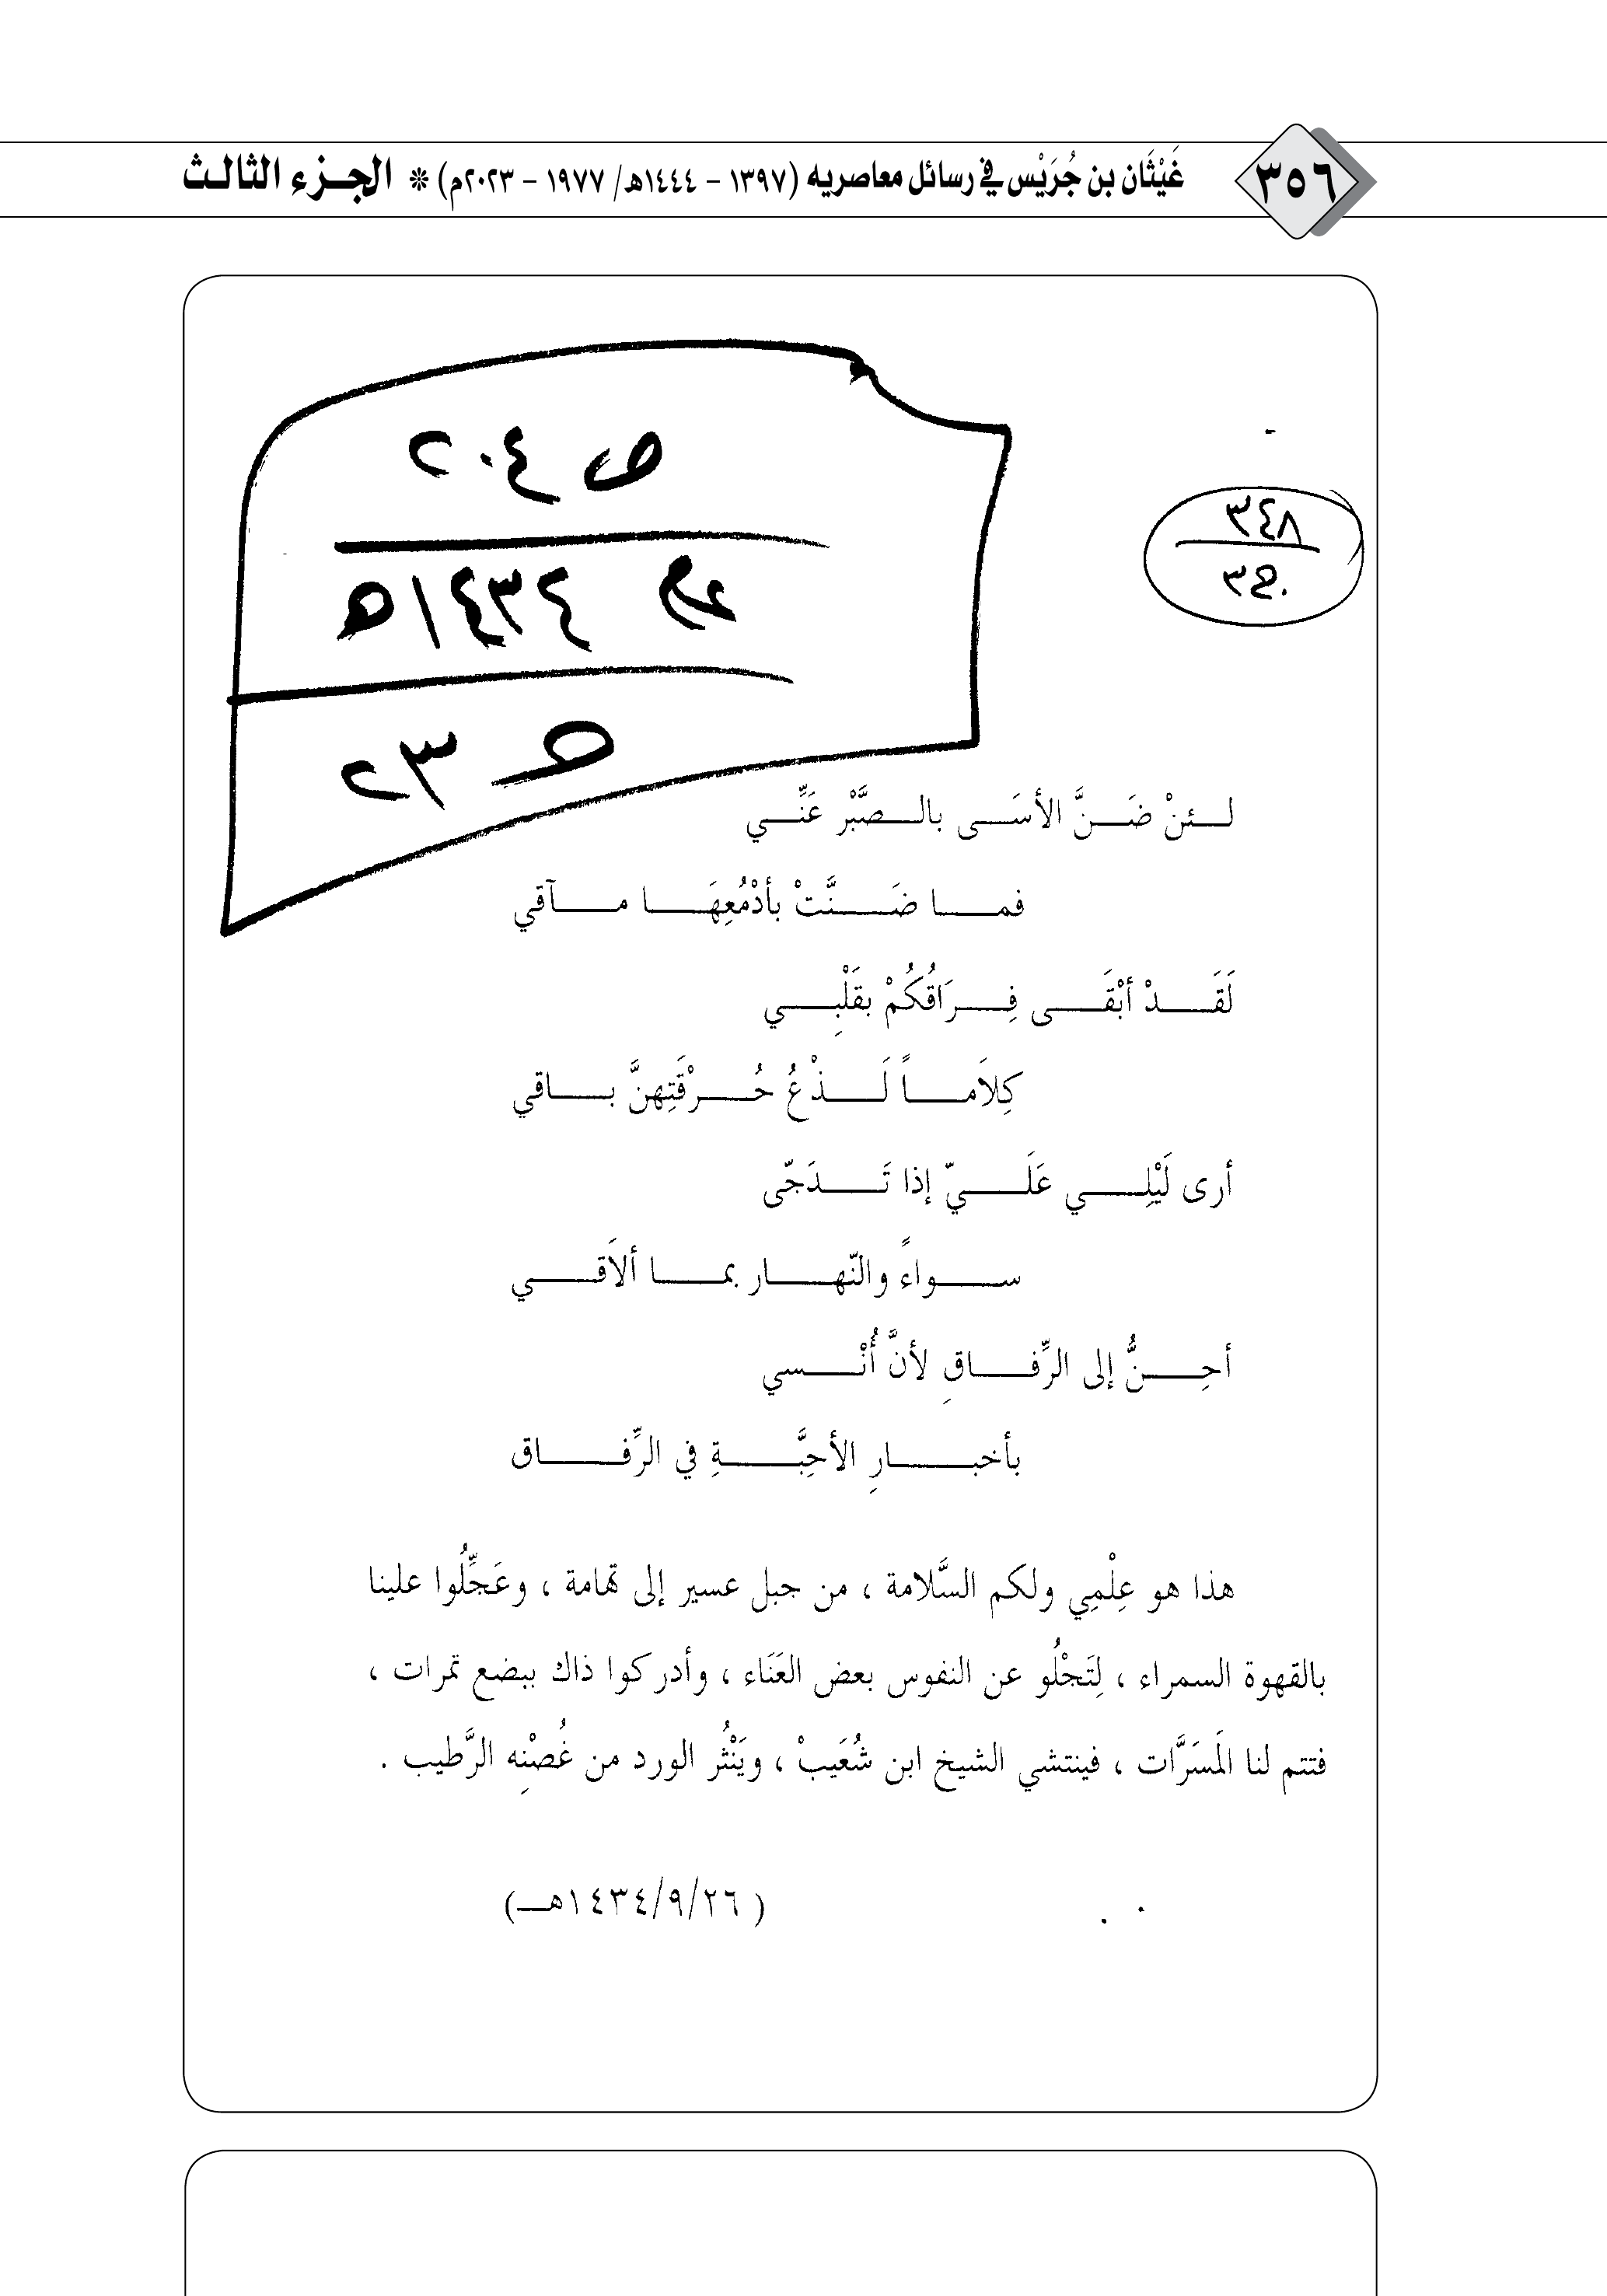 ٣٥٦
غَيْثَان بن جُرَيْس في رسائل معاصريه (١٣٩٧ - ١٤٤٤هـ/ ١٩٧٧ - ٢٠٢٣م) * الجـزء الثالـث
ص ٢٠٤
عام ١٤٣٤هـ
٢٣
٣٤٨
لـئنْ ضَـنَّ الأسَـى بالـصَّبْر عَنِّـي
فمـا ضَـنَّتْ بأدْمُعِهَـا مـآقي
لَقَـدْ أبْقَـى فِـرَاقُكُمْ بقَلْبِـي
كِلاَمـاً لَـذْعُ حُـرْقَتِهِنَّ بـاقي
أرى لَيْلِـي عَلَـيّ إذا تَـدَجّى
سـواءً والنّهـار بمـا ألاَقـي
أحِـنُّ إلى الرِّفـاقِ لأنَّ أُنْـسي
بأخبـارِ الأحِبَّـةِ في الرِّفـاق
هذا هو عِلْمِي ولكم السَّلامة ، من جبل عسير إلى تهامة ، وعَجِّلُوا علينا
بالقهوة السمراء ، لِتَجْلُو عن النفوس بعض العَنَاء ، وأدركوا ذاك ببضع تمرات ،
فتتم لنا المَسَرَّات ، فينتشي الشيخ ابن شُعَيبْ ، ويَنْثُر الورد من غُصْنِه الرَّطيب .
( ١٤٣٤/٩/٢٦هـ)